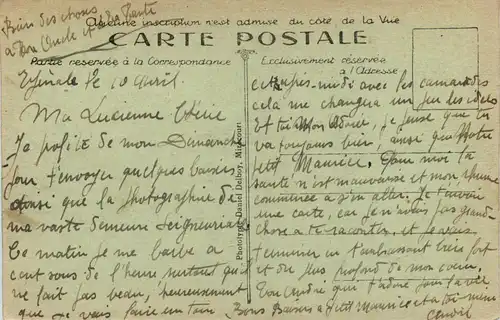 Bien des choses
à ton Oncle et à la Tante
Aucune inscription n'est admise du côté de la Vue
CARTE POSTALE
Partie réservée à la Correspondance
Exclusivement réservée
à l'Adresse
le 10 Avril.
Ma Lucienne Chérie
Je profite de mon Dimanche
pour t'envoyer quelques baisers
ainsi que la photographie de
ma vaste demeure Seigneuriale
Ce matin je me barbe à
cent sous de l'heure surtout qu'il
ne fait pas beau, heureusement
que je vais faire un tour
Phototypie Daniel Delboy, Mirecourt
cet après-midi avec les camarades
cela me changera un peu les idées
Et toi Mon Adorée, je pense que tu
vas toujours bien, ainsi que Notre
petit Maurice. Pour moi la
santé n'est pas mauvaise et mon rhume
commence à s'en aller. Je t'envoie
une carte, car je n'avais pas grand
chose à te raconter, et je vais
terminer en t'embrassant bien fort
et du plus profond de mon coeur.
Ton André qui t'adore pour la vie
Bons Baisers à Petit Maurice et à toi-même
André